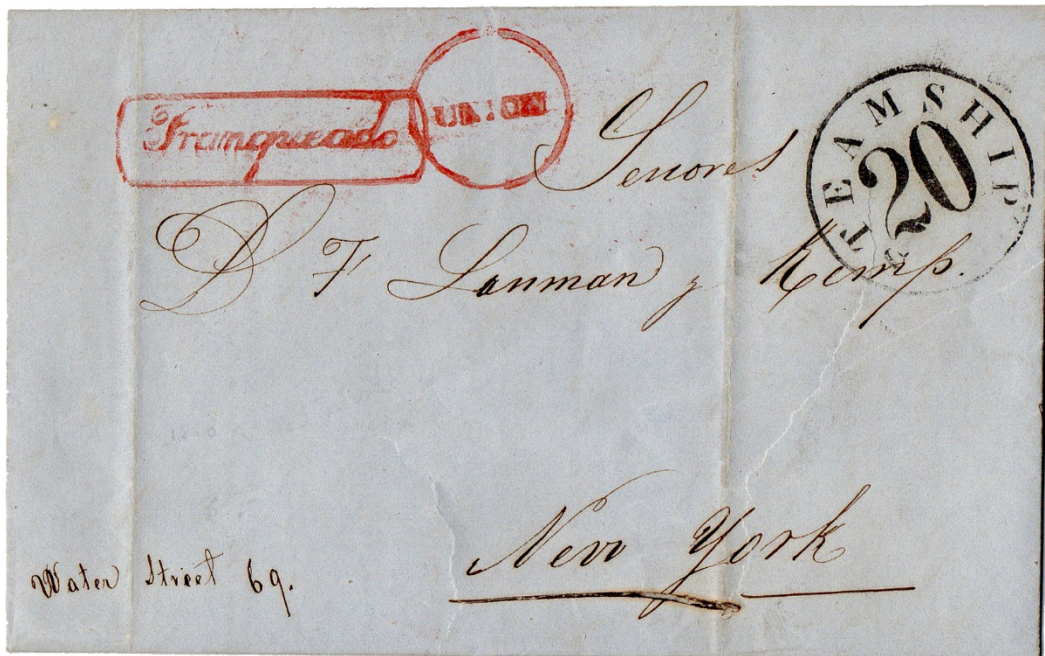 Franqueado
UNION
STEAMSHIP
20
Señores
D F Lanman y Kemp.
New York
Water Street 69.